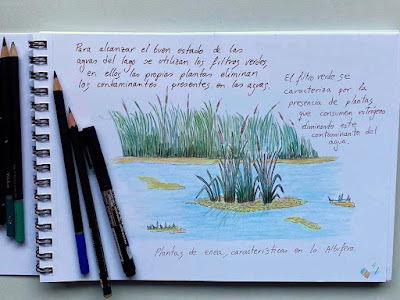 Para alcanzar el buen estado de las
aguas del lago se utilizan los filtros verdes,
en ellos las propias plantas eliminan
los contaminantes presentes en las aguas.
El filtro verde se
caracteriza por la
presencia de plantas
que consumen nitrógeno
eliminando este
contaminante del
agua.
Plantas de enea, características en la Albufera.